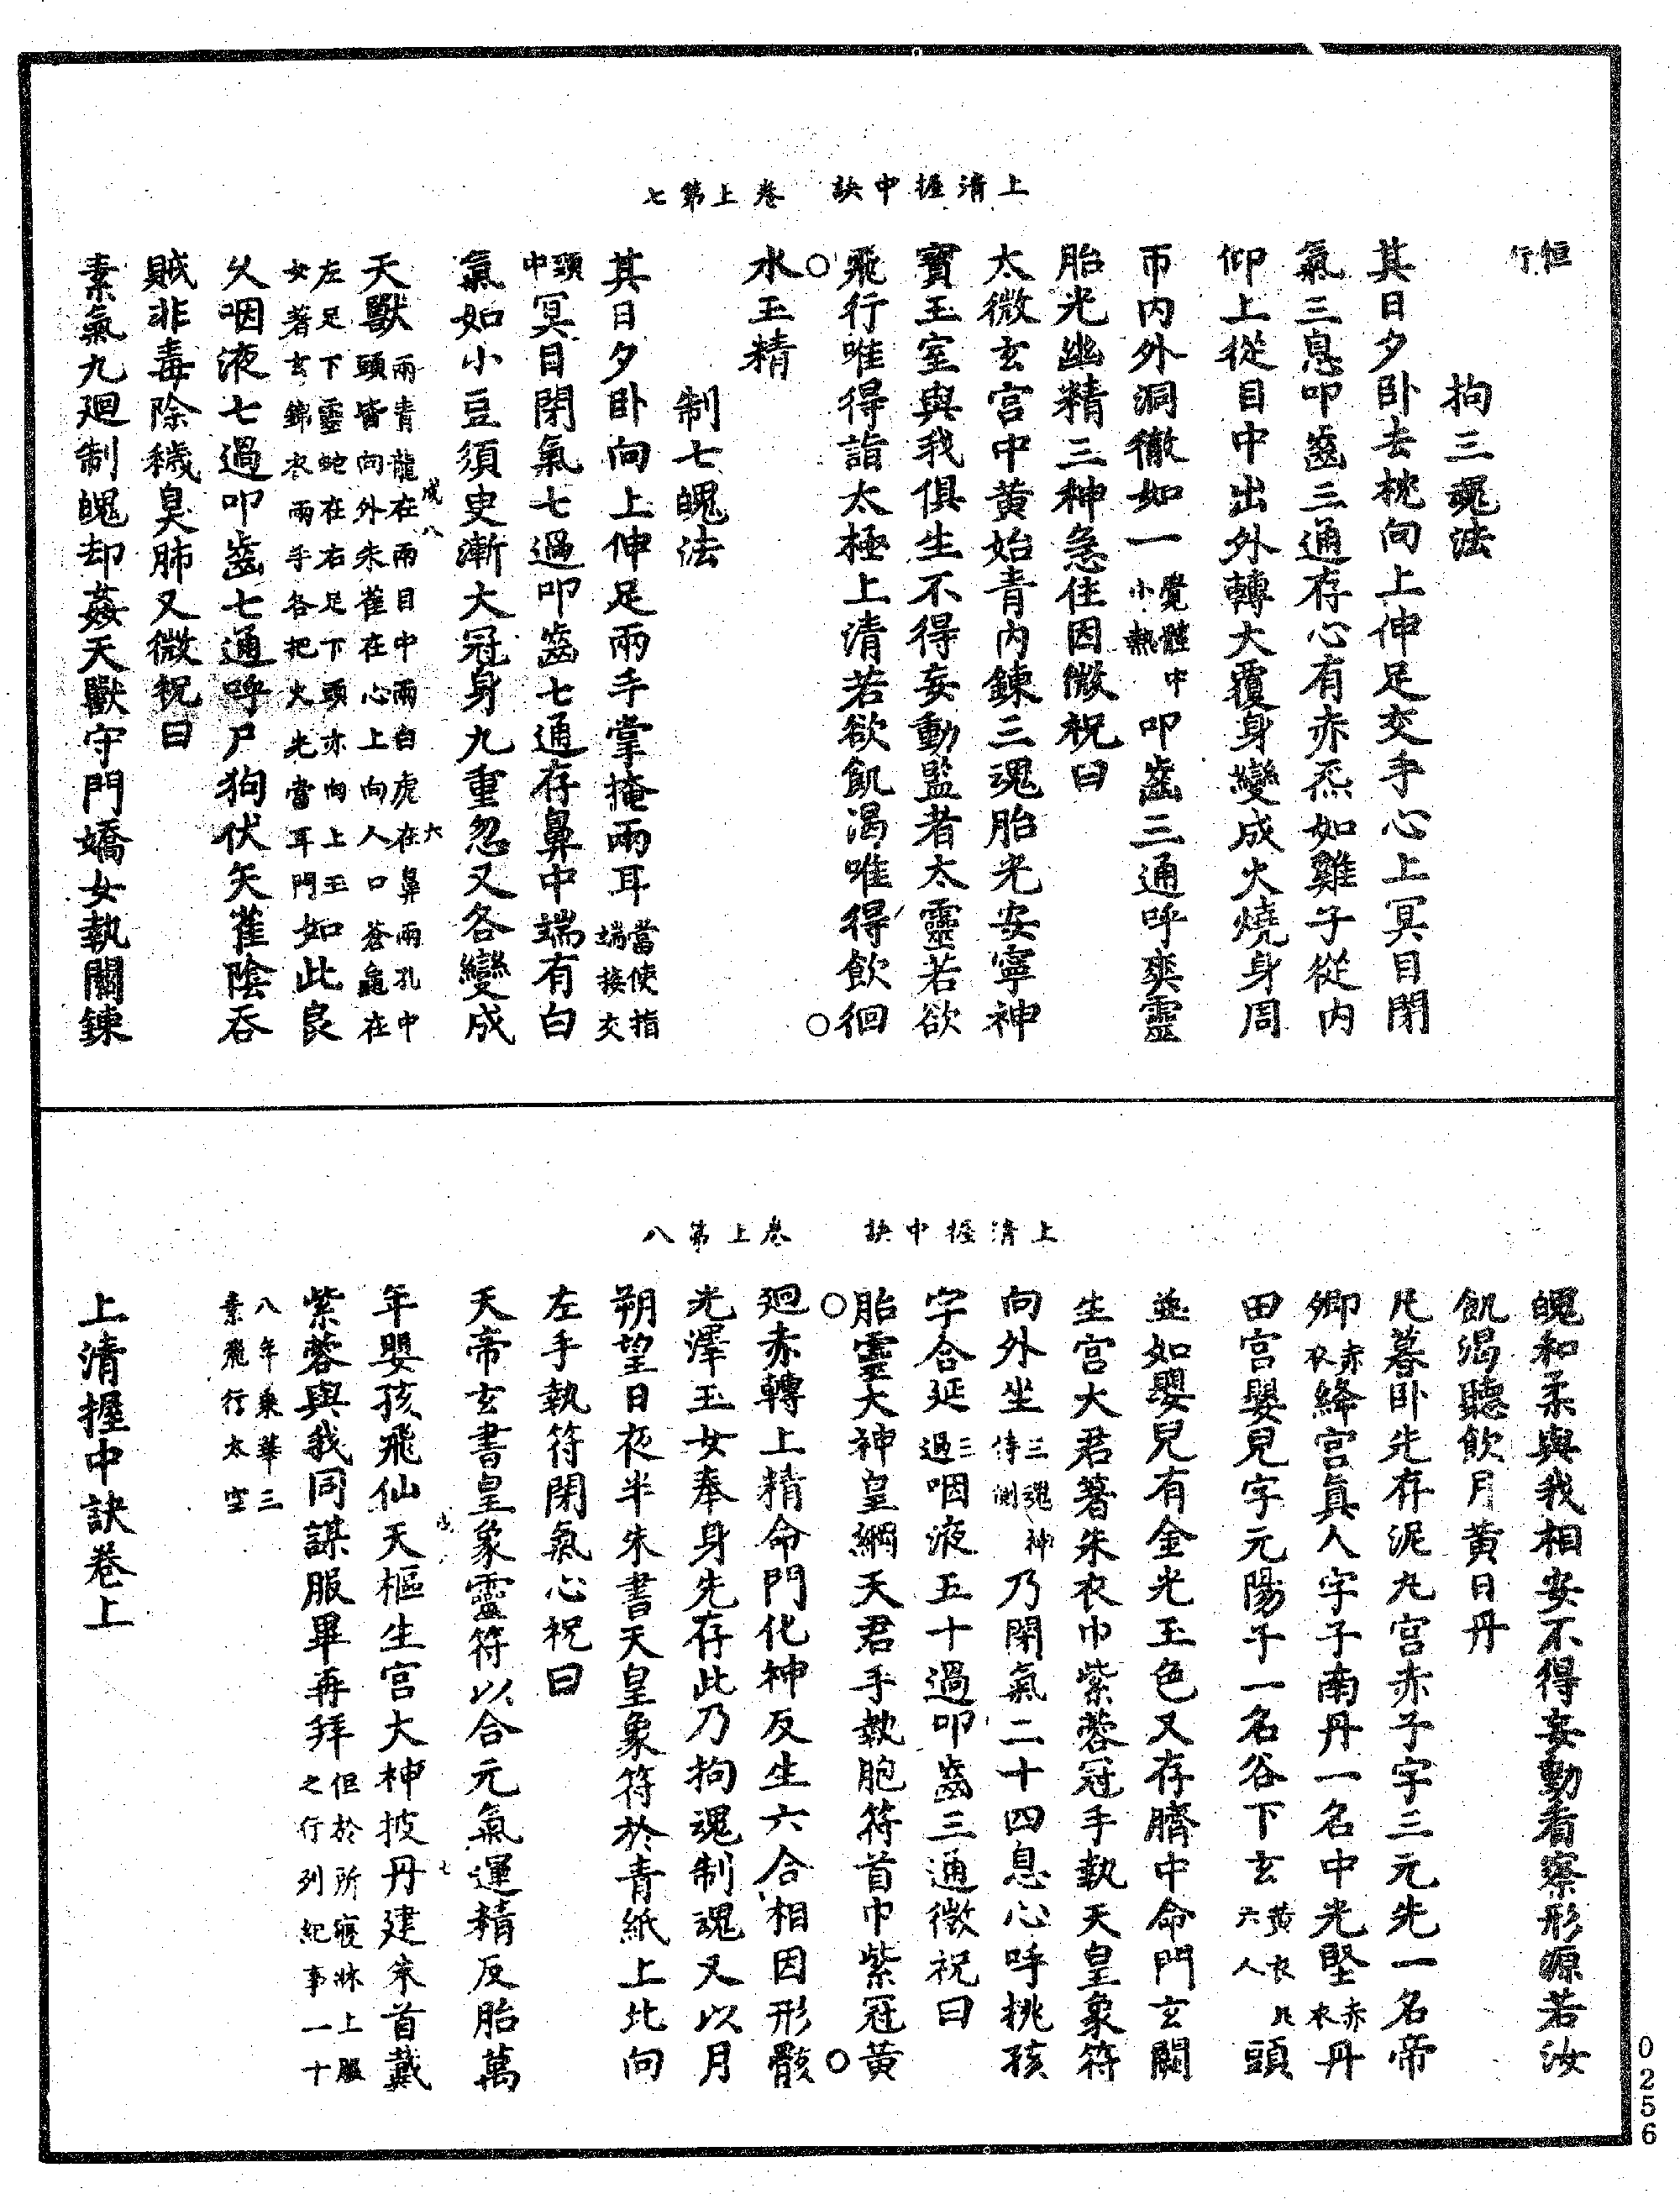 上清握中訣　卷上第七
恒行
拘三魂法
其日夕卧去枕向上伸足交手心上冥目閉
氣三息叩齒三通存心有赤炁如雞子從內
仰上從目中出外轉大覆身變成火燒身周
帀內外洞徹如一覺體中小熱叩齒三通呼爽靈
胎光幽精三神急住因微祝曰
太微玄宮中黃始青內鍊三魂胎光安寧神
寶玉室與我俱生不得妄動監者太靈若欲
飛行唯得詣太極上清若欲飢渴唯得飲徊
水玉精
制七魄法
其日夕卧向上伸足兩手掌掩兩耳當使指端接交
頭中冥目閉氣七過叩齒七通存鼻中端有白
氣如小豆須臾漸大冠身九重忽又各變成
天獸兩青龍在兩目中兩白虎在鼻兩孔中頭皆向外朱雀在心上向人口蒼龜在
左足下靈蛇在右足下頭亦向上玉女著玄錦衣兩手各把火光當耳門如此良
久咽液七過叩齒七通呼尸狗伏矢雀陰吞
賊非毒除穢臭肺又微祝曰
素氣九廻制魄却姦天獸守門嬌女執關鍊
上清握中訣　卷上第八
魄和柔與我相安不得妄動看察形源若汝
飢渴聽飲月黃日丹
凡暮卧先存泥丸宮赤子字三元先一名帝
卿赤衣絳宮真人字子南丹一名中光堅赤衣丹
田宮嬰兒字元陽子一名谷下玄黃衣凡六人頭
並如嬰兒有金光玉色又存臍中命門玄關
生宮大君著朱衣巾紫蓉冠手執天皇象符
向外坐三魂神侍側乃閉氣二十四息心呼桃孩
字合延三過咽液五十過叩齒三通微祝曰
胎靈大神皇綱天君手執胞符首巾紫冠黃
廻赤轉上精命門化神反生六合相因形骸
光澤玉女奉身先存此乃拘魂制魂又以月
朔望日夜半朱書天皇象符於青紙上北向
左手執符閉氣心祝曰
天帝玄書皇象靈符以合元氣運精反胎萬
年嬰孩飛仙天樞生宮大神披丹建朱首戴
紫蓉與我同謀服畢再拜但於所寢牀上服之行列紀事一十
八年乘華三素飛行太空
上清握中訣卷上
0256